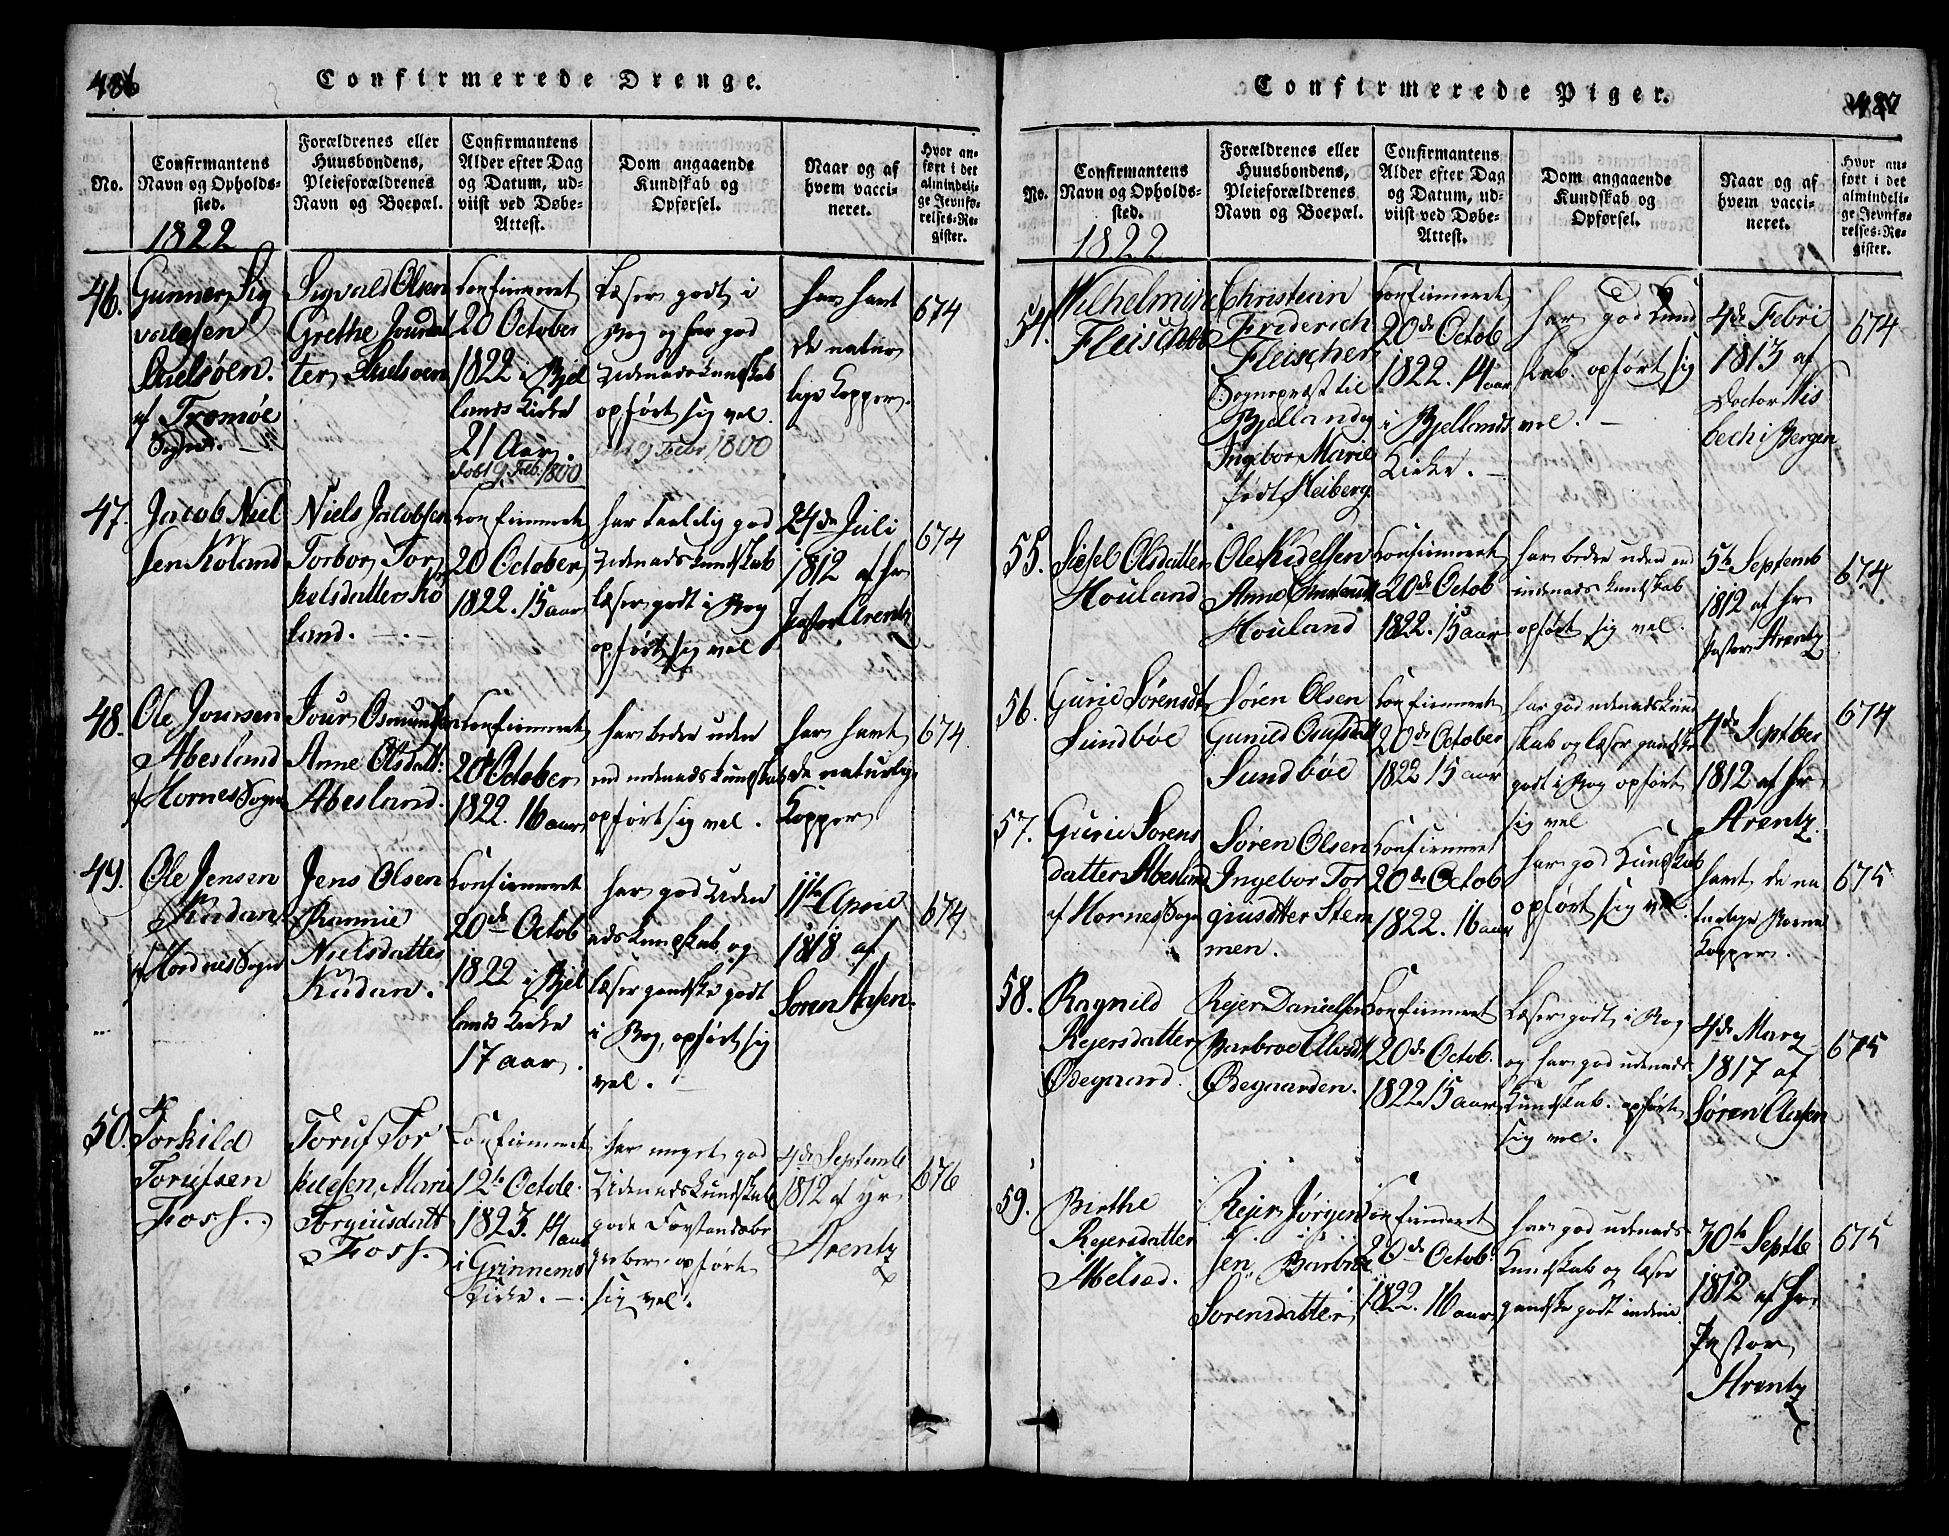 486
Confirmerede Drenge.
No.
Confirmantens
Navn og Opholds-
sted.
1822
Forældrenes eller
Huusbondens,
Pleieforældrenes
Navn og Boepæl.
Confirmantens
Alder efter Dag
og Datum, ud-
viist ved Døbe-
Attest.
Dom angaaende
Kundskab og
Opførsel.
Naar og af
hvem vacci-
neret.
Hvor an-
ført i det
almindeli-
ge Jevnfø-
relses-Re-
gister.
46.
Gunner Sig
valdsen
af Tromøe
Sogn.
Sigvald Olsen
Grethe
Confirmeret
20 October
1822 i Bjel
lands Kirke
21 Aar.
født 9 Feb. 1800
Læser godt i
Bog og har god
Udenadskundskab
opført sig vel.
9 Febr 1800
har havt
de natur
lige Kopper.
674
47.
Jacob Niel
sen Koland
Niels Jacobsen
Torbor Tor
kelsdatter Ko
land.
Confirmeret
20 October
1822. 15 aar
har taalelig god
Udenadskundskab
læser godt i Bog
opført sig vel
24de Juli
1812 af Hr
Pastor Arentz
674
48.
Ole Joursen
Abesland
af Hornes Sogn
Jour Osmundsen
Anne Olsdatt:
Abesland.
Confirmeret
20de October
1822. 16 aar
har bedre uden
end udenadskundskab
opført sig vel.
har havt
de naturlige
Kopper
674
49.
Ole Jensen
Kudan
af Hordnes Sogn
Jens Olsen
Rannie
Nielsdatter
Kudan.
Confirmeret
20de Octob
1822 i Bjel
lands Kirke
17 aar.
har god Uden
adskundskab og
læser gandske godt
i Bog, opført sig
vel.
11te April
1818 af
Søren Aasen.
674
50.
Torkild
Torufsen
Foss.
Toruf Tor
kildsen, Mari
Torgiusdatt
Foss.
Confirmeret
12te Octobe.
1823. 14 aar
i Grinnems
Kirke.
har meget god
Udenadskundskab
gode Forstandsbe
opført
sig vel.
4de Septemb
1812 af Hr
Arentz
676
487
Confirmerede Piger.
No.
Confirmantens
Navn og Opholds-
sted.
1822
Forældrenes eller
Huusbondens,
Pleieforældrenes
Navn og Boepæl.
Confirmantens
Alder efter Dag
og Datum, ud-
viist ved Døbe-
Attest.
Dom angaaende
Kundskab og
Opførsel.
Naar og af
hvem vacci-
neret.
Hvor an-
ført i det
almindeli-
ge Jevnfø-
relses-Re-
gister.
54.
Wilhelmine
Fleischer
Christian
Friderich
Fleischer
Sognepræst til
Bjelland og
Ingebor Marie
født Heiberg
Confirmeret
20de Octob
1822. 14 aar
i Bjellands
Kirke.
har god Kund
skab. opført sig
vel.
4de Febri
1813 af
Doctor Wis
bech i Bergen
674
55.
Sissel Olsdatter
Houland
Ole Kidelsen
Anne
Houland
Confirmeret
20de Octob
1822. 15 aar
har bedre uden end
indenads kundskab
opført sig vel.
5te Septemb
1812 af Hr
Pastor Arentz
674
56.
Gurie Sørensdt
Sundbøe
Søren Olsen
Gunild
Sundbøe
Confirmeret
20de October
1822 15 aar
har god udenadskund
skab og læser gandske
godt i Bog opført
sig vel
4de Septber
1812 af Hr
Arentz
674
57.
Gurie Sørens
datter Abesland
af Hornes Sogn
Søren Olsen
Ingebor Tor
giusdtter Stem
men.
Confirmeret
20de Octob
1822. 16 aar
har god Kundskab
opført sig vel.
havt de na
turlige Børne
Kopper.
675
58.
Ragnild
Rejersdatter
Ødegaard.
Rejer Danielsen
Barbroe Olsdt
Ødegaarden.
Confirmeret
20de Octob.
1822 15 aar
Læser godt i Bog
og har god udenads
Kundskab. opført
sig vel.
4de Marz
1817 af
Søren Aasen
675
59.
Birthe
Rejersdatter
Abelsed.
Rejer Jørgen
sen, Barbroe
Sørensdatter
Confirmeret
20de Octob.
1822. 16 aar
har god udenads
Kundskab og læser
gandske godt inden
30te Septb
1812 af Hr
Pastor
Arentz
675